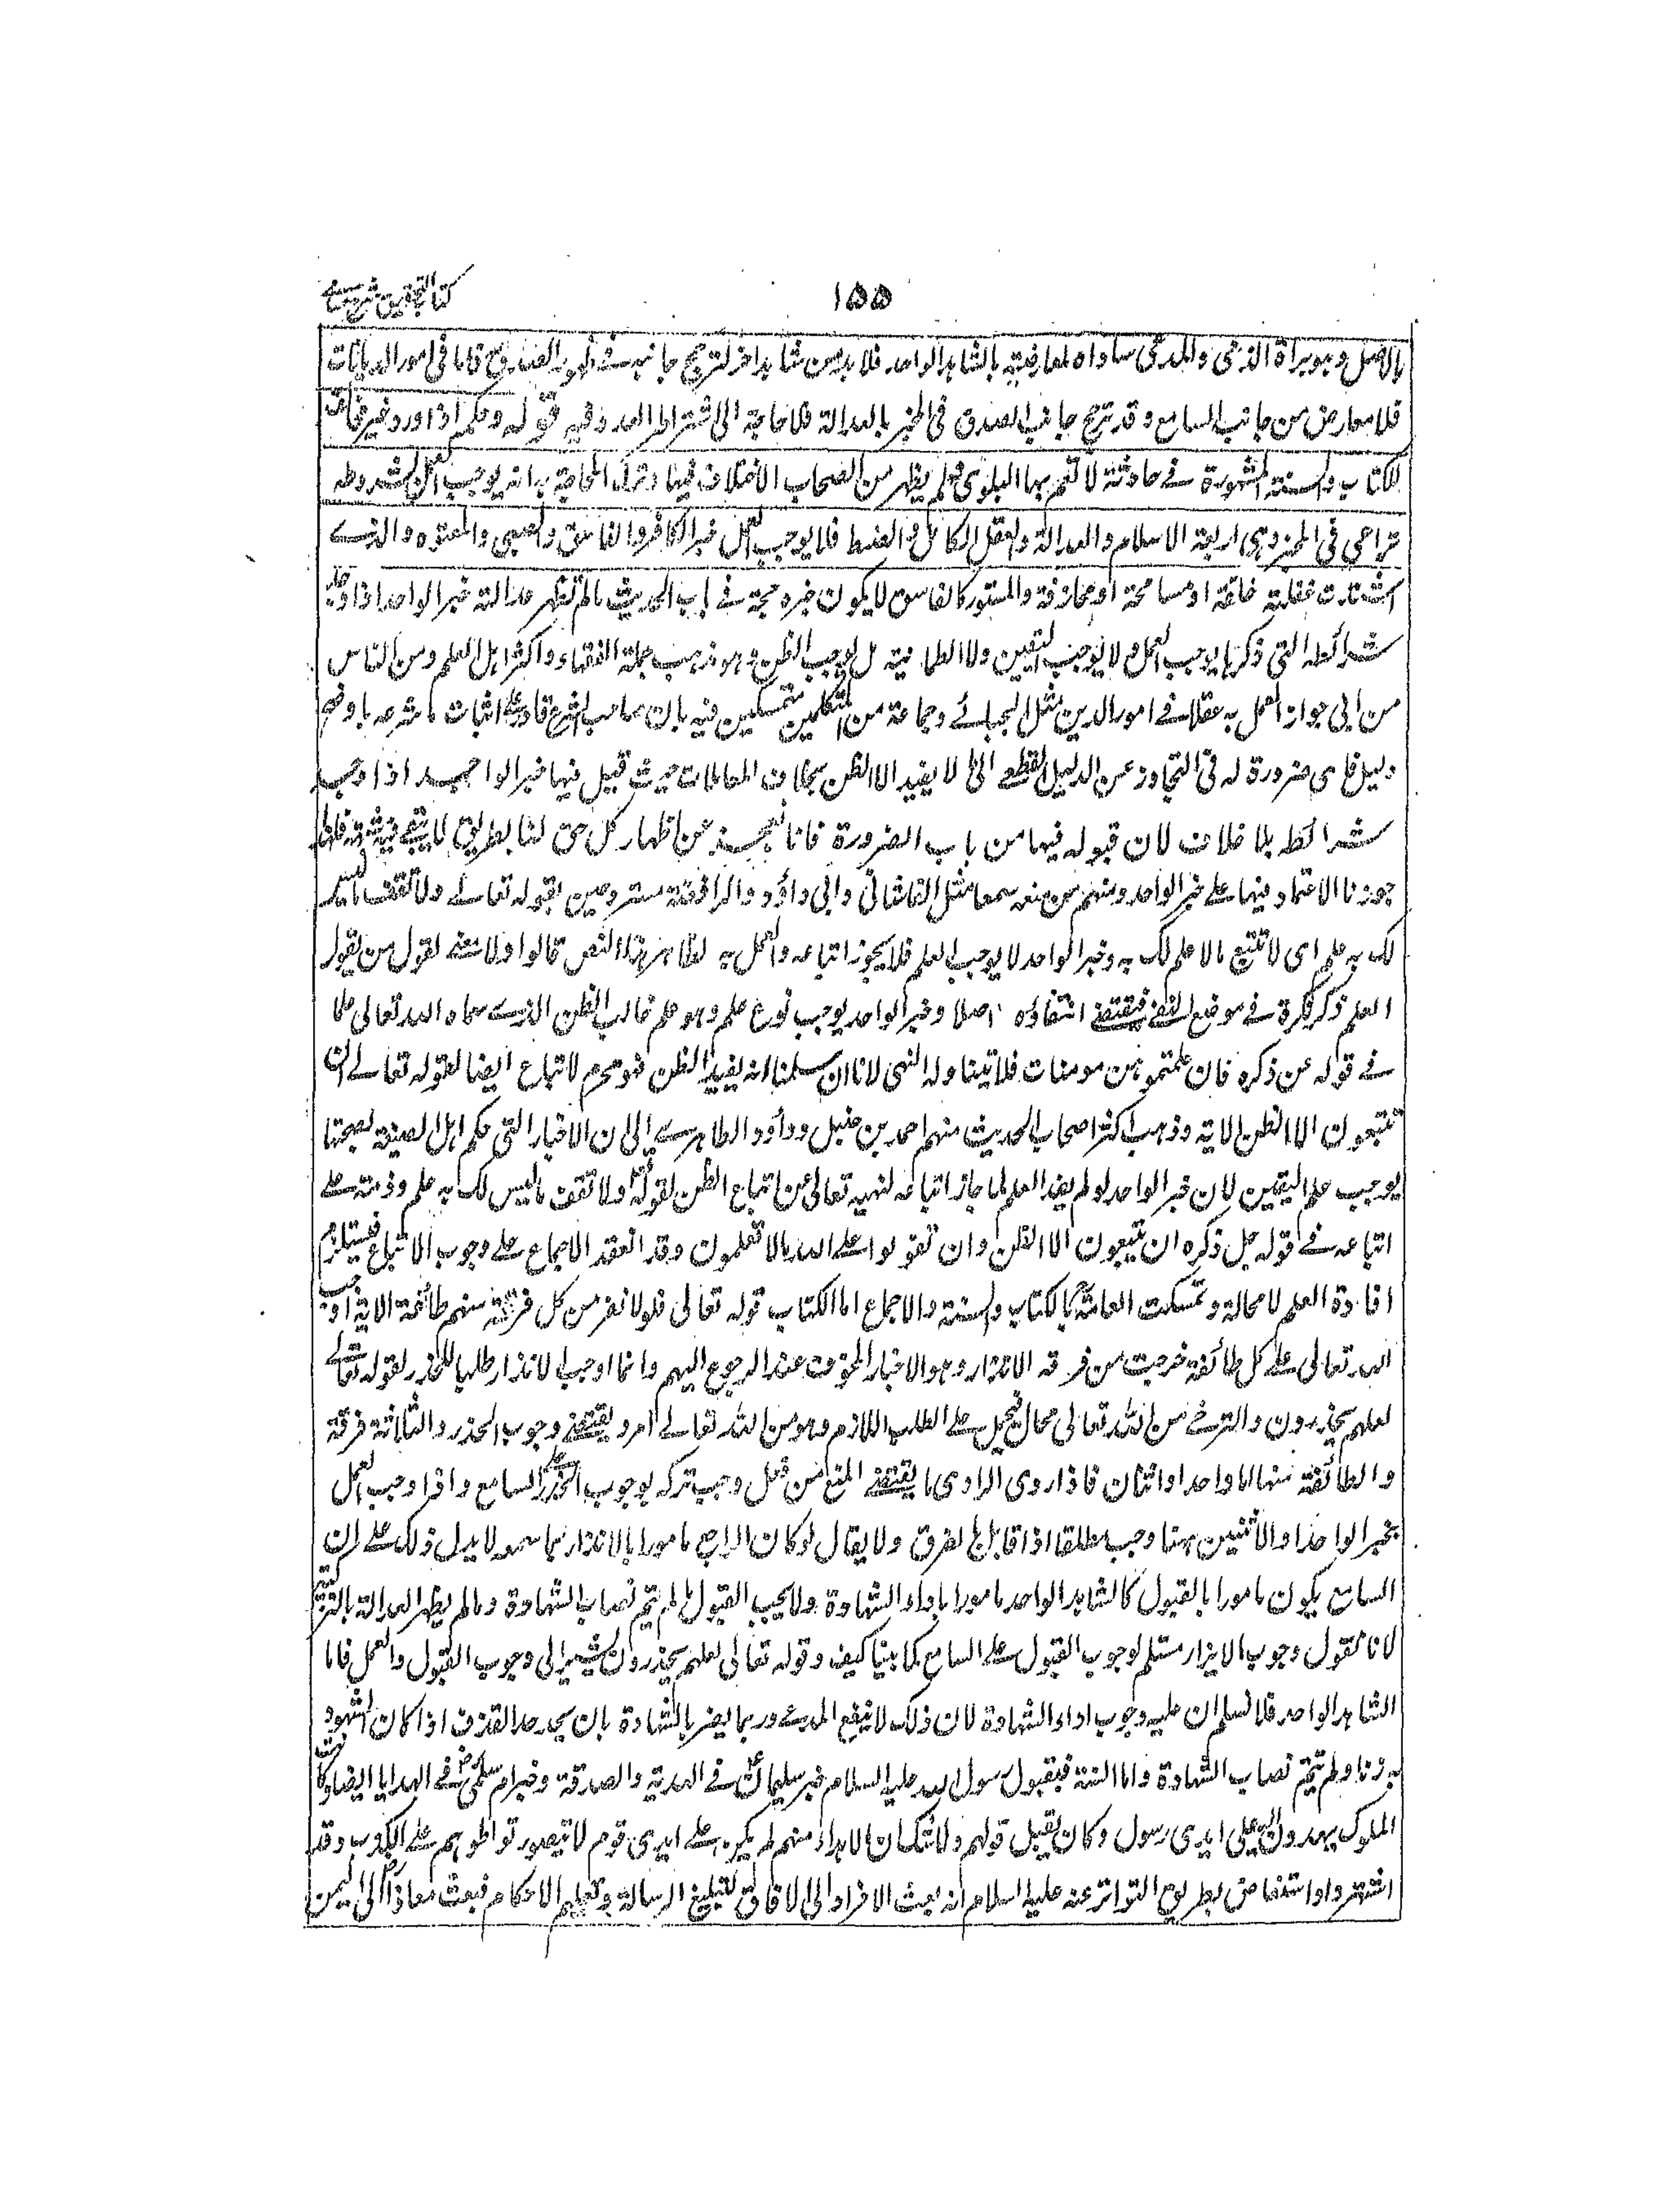 ۱۵۵
كتاب التحقيق شرح حسامى
بالاصل وهو براءة الذمى والمدعى ساواه لمعارضته بالشاهد الواحد فلا بد من شاهد اخر لترجيح جانبه فى ظهور الصدق فاما فى امور الديانات
فلا معارض من جانب السامع وقد ترجح جانب الصدق فى الخبر بالعدالة فلا حاجة الى اشتراط العدد فيه قوله وحكمه اذا ورد غير مخالف
للكتاب والسنة المشهورة فى حادثة لا تعم بها البلوى ولم يظهر من الصحابة الاختلاف فيها وترك المحاجة به انه يوجب العمل بشروطه
تراعى فى المخبر وهى اربعة الاسلام والعدالة والعقل الكامل والضبط فلا يوجب العمل خبر الكافر والفاسق والصبى والمعتوه والذى
اشتدت غفلته خلقة او مسامحة او مجازفة والمستور كالفاسق لا يكون خبره حجة فى باب الحديث ما لم تظهر عدالته خبر الواحد اذا وجد
شرائطه التى ذكرناها يوجب العمل ولا يوجب اليقين ولا الطمانية بل يوجب الظن وهو مذهب جملة الفقهاء واكثر اهل العلم ومن الناس
من ابى جواز العمل به عقلا فى امور الدين مثل الجبائى وجماعة من المتكلمين متمسكين فيه بان صاحب الشرع قادر على اثبات ما شرعه باوضح
دليل فاى ضرورة له فى التجاوز عن الدليل القطعى الى ما لا يفيد الا الظن بخلاف المعاملات حيث قبل فيها خبر الواحد اذا وجب
شرائطه بلا خلاف لان قبوله فيها من باب الضرورة فانا نعجز عن اظهار كل حق لنا بطريق لا يبقى فيه شبهة فلهذا
جوزنا الاعتماد فيها على خبر الواحد ومنهم من منعه سمعا مثل القاشانى وابى داؤد والرافضة مستروحين بقوله تعالى ولا تقف ما ليس
لك به علم اى لا تتبع ما لا علم لك به وخبر الواحد لا يوجب العلم فلا يجوز اتباعه والعمل به لظاهر هذا النص قالوا ولا معنى لقول من يقول
العلم ذكر نكرة فى موضع النفى فيقتضى انتفاؤه اصلا وخبر الواحد يوجب نوع علم وهو علم غالب الظن الذى سماه الله تعالى علما
فى قوله عن ذكره فان علمتموهن مومنات فلا يتناوله النهى لانا ان سلمنا انه يفيد الظن فهو محرم الاتباع ايضا لقوله تعالى ان
تتبعون الا الظن الاية وذهب اكثر اصحاب الحديث منهم احمد بن حنبل وداؤد الظاهرى الى ان الاخبار التى حكم اهل الصنعة بصحتها
يوجب علم اليقين لان خبر الواحد لو لم يفد العلم لما جاز اتباعه لنهيه تعالى عن اتباع الظن لقوله ولا تقف ما ليس لك به علم وذمه على
اتباعه فى قوله جل ذكره ان تتبعون الا الظن وان تقولوا على الله ما لا تعلمون وقد انعقد الاجماع على وجوب الاتباع فيستلزم
افادة العلم لا محالة وتمسكت العامة بالكتاب والسنة والاجماع اما الكتاب قوله تعالى فلولا نفر من كل فرقة منهم طائفة الاية اوجب
الله تعالى على كل طائفة خرجت من فرقة الانذار وهو الاخبار المخوف عند الرجوع اليهم وانما اوجب الانذار طلبا للحذر لقوله تعالى
لعلهم يحذرون والترجى من الله تعالى محال فيحمل على الطلب اللازم وهو من الله تعالى امر ويقتضى وجوب الحذر والثلاثة فرقة
والطائفة منها اما واحد او اثنان فاذا روى الراوى ما يقتضى المنع من فعل وجب تركه لوجوب الحذر على السامع واذا وجب العمل
بخبر الواحد او الاثنين ههنا وجب مطلقا اذا قابل بالفرق ولا يقال لو كان الراجع مامورا بالانذار بما سمعه لا يدل ذلك على ان
السامع يكون مامورا بالقبول كالشاهد الواحد مامورا باداء الشهادة ولا يجب القبول ما لم يتم نصاب الشهادة وما لم يظهر العدالة بالتزكية
لانا نقول وجوب الانذار مستلزم لوجوب القبول على السامع كما بينا كيف وقوله تعالى لعلهم يحذرون يشير الى وجوب القبول والعمل فاما
الشاهد الواحد فلا نسلم ان عليه وجوب اداء الشهادة لان ذلك لا ينفع المدعى وربما يضر بالشهادة بان يحد حد القذف اذا كان المشهود
به زنا ولم يتم نصاب الشهادة واما السنة فبقبول رسول الله عليه السلام خبر سليمان فى الهدية والصدقة وخبر ام سلمى فى الهدايا ايضا وكانت
الملوك يهدون اليه على ايدى رسول وكان يقبل قولهم ولا شك ان الاهداء منهم لم يكن على ايدى قوم لا يتصور تواطؤهم على الكذب وقد
اشتهر واستفاض بطريق التواتر عنه عليه السلام انه بعث الافراد الى الافاق لتبليغ الرسالة وتعليم الاحكام فبعث معاذا الى اليمن